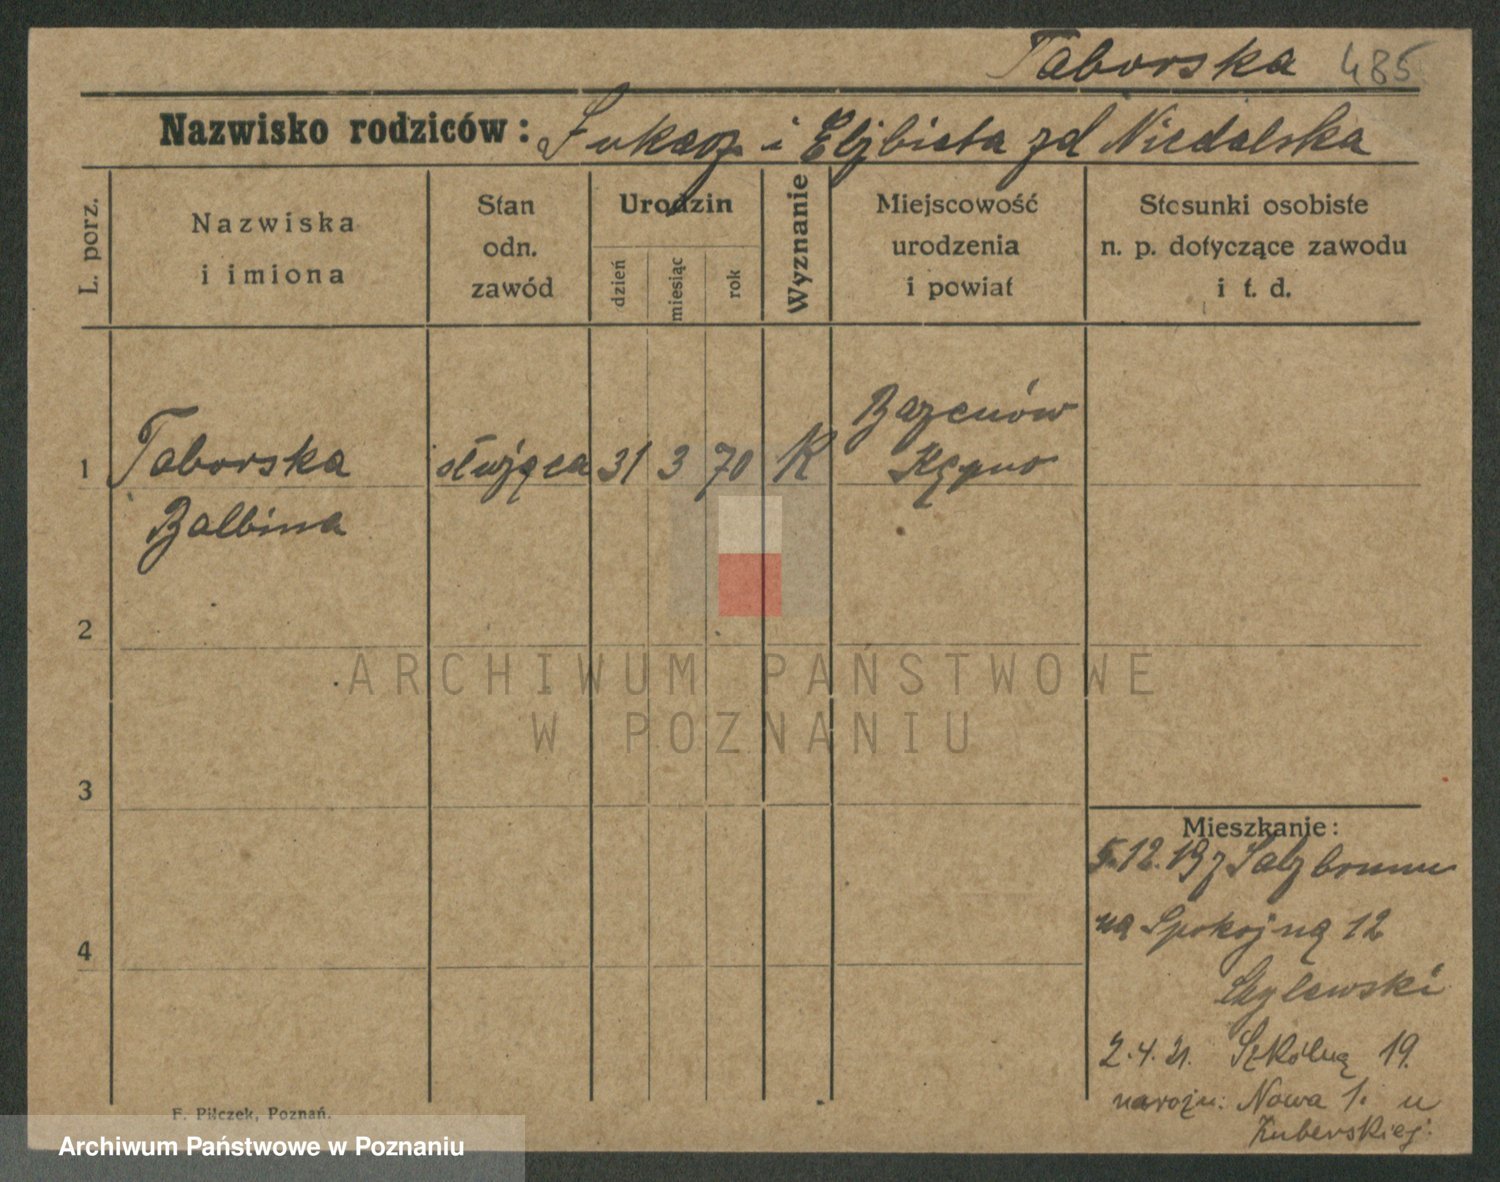 Taborska 485
Nazwisko rodziców: Łukasz i Elżbieta zd Niedalska
L. porz.
Nazwiska
i imiona
Stan
odn.
zawód
Urodzin
dzień
miesiąc
rok
Wyznanie
Miejscowość
urodzenia
i powiat
Stosunki osobiste
n. p. dotyczące zawodu
i t. d.
1 Taborska służąca 31 3 70 K Bazenów
Kępno
Balbina
2
3
4
Mieszkanie:
5.12.19 z Salzbrunn
na Spokojną 12
2.4.21. Szkólną 19.
narożn: Nowa 1. u
F. Pilczek, Poznań.
ARCHIWUM PAŃSTWOWE
W POZNANIU
Archiwum Państwowe w Poznaniu